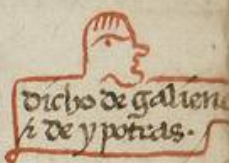 dicho de galieno
⁊ de ypotras.